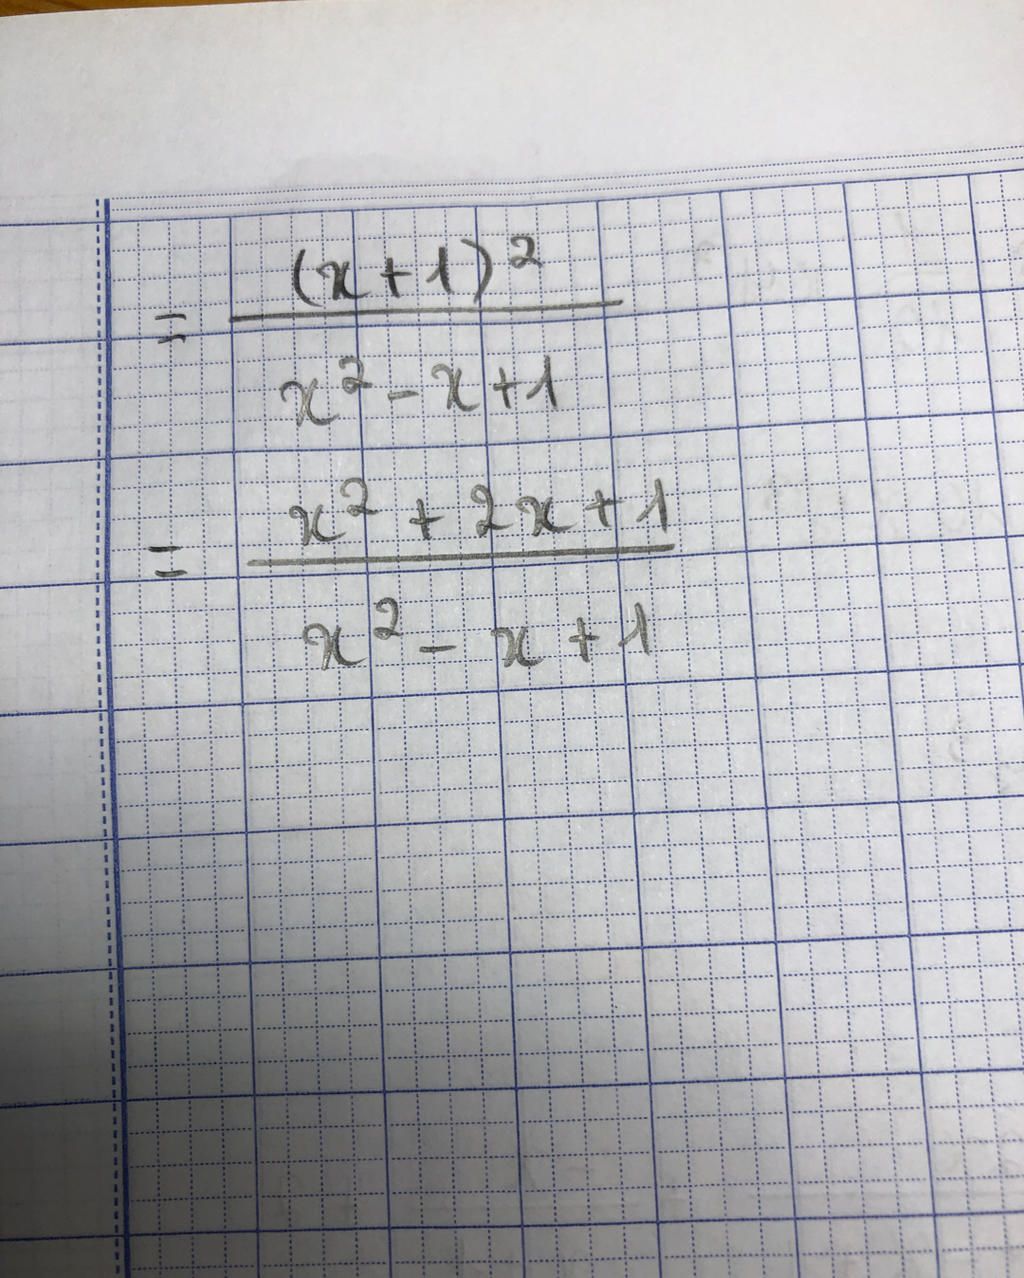 = (x+1)² / x² - x + 1
= x² + 2x + 1 / x² - x + 1